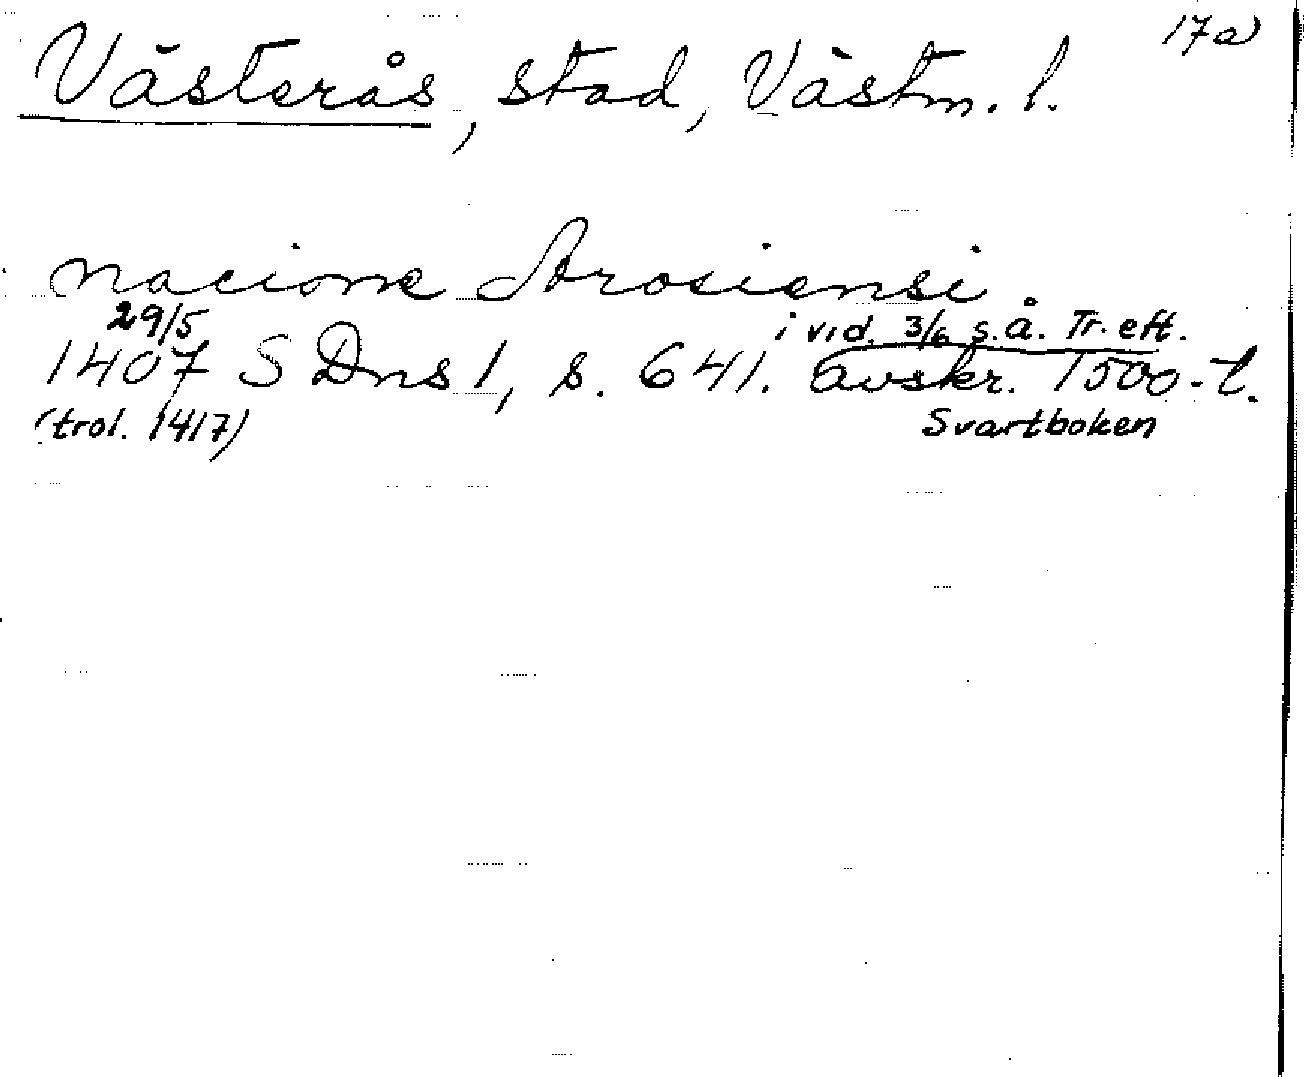 17a
Västerås, stad, Västm. l.
nacione Arosiensi.
29/5 i vid. 3/6 s.å. Tr. eft.
1407 SDns 1, s. 641. avskr. 1500-t.
(trol. 1417) Svartboken